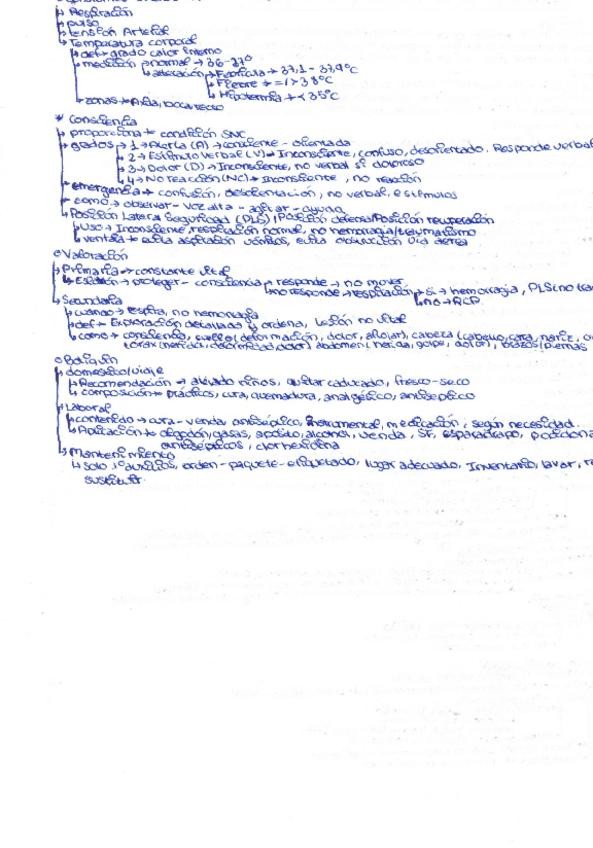 ↳ Respiración
↳ pulso
↳ tensión Arterial
↳ Temperatura corporal
↳ def → grado calor interno
↳ medición → normal → 36-37º
↳ alteración → Febrícula → 37,1 - 37,9ºC
↳ Fiebre → =/> 38ºC
↳ Hipotermia → < 35ºC
↳ zonas → Axila, boca, recto
* Consciencia
↳ proporciona → condición SNC
↳ grados → 1 → Alerta (A) → consciente - orientada
↳ 2 → Estímulo verbal (V) → Inconsciente, confuso, desorientado. Responde verbal
↳ 3 → Dolor (D) → Inconsciente, no verbal sí doloroso
↳ 4 → No reacción (NC) → Inconsciente, no reacción
↳ emergencia → confusión, desorientación, no verbal, estímulos
↳ como → observar - voz alta - agitar - ayuda
↳ Posición Lateral Seguridad (PLS), Posición defensa/Posición recuperación
↳ Uso → Inconsciente, respiración normal, no hemorragia/traumatismo
↳ ventaja → evita aspiración vómitos, evita obstrucción vía aérea
Valoración
↳ Primaria → constante vital
↳ → proteger - consciencia → responde → no mover
↳ no responde → respiración → sí → hemorragia, PLS (no
↳ no → RCP
↳ Secundaria
↳ cuando → respira, no hemorragia
↳ def → Exploración detallada y ordena, Lesión no vital
↳ como → consciencia, cuello (deformación, dolor, aflojar), cabeza (cabello, cara, nariz,
tórax (herida, deformidad, dolor) abdomen (herida, golpe, dolor), brazos/piernas
Botiquín
↳ domestico/viaje
↳ Recomendación → alejado niños, quitar caducado, fresco-seco
↳ composición → prácticos, cura, quemadura, analgésico, antiséptico
↳ Laboral
↳ contenido → cura - venda, antiséptico, instrumental, medicación, según necesidad.
↳ → algodón, gasas, apósito, alcohol, venda, SF, esparadrapo,
antisépticos, clorhexidina
↳ Mantenimiento
↳ Solo 1º auxilios, orden - paquete - etiquetado, lugar adecuado, Inventario, lavar,
sustituir.